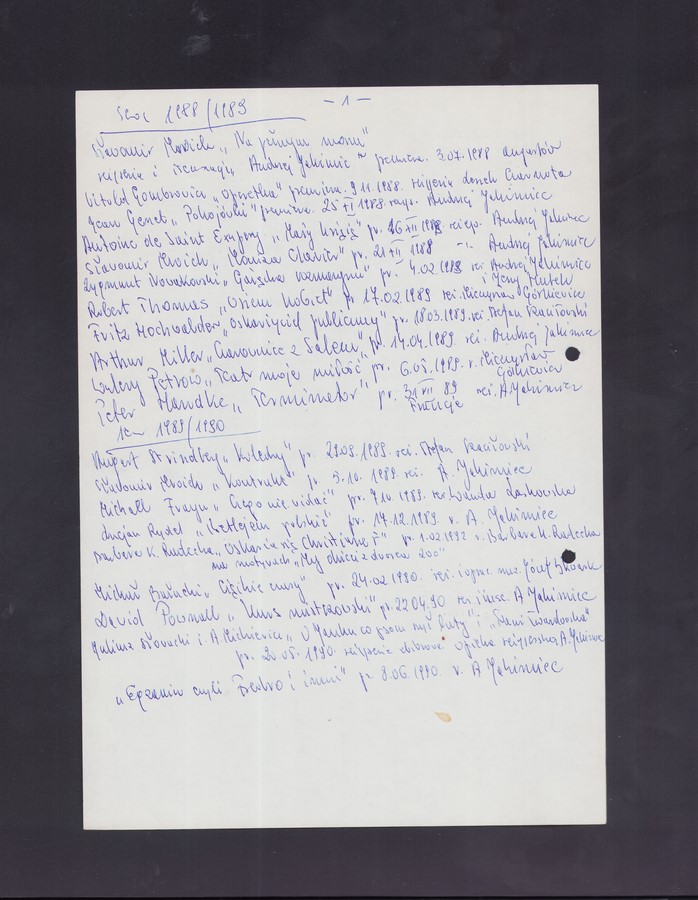 sez. 1988/1989 - 1 -
Sławomir Mrożek „Na pełnym morzu"
reżyseria i Andrzej Jakimiec premiera. 3.07.1988 Augustów
Witold Gombrowicz „Operetka" premiera. 9.11.1988. reżyseria Leszek Czarnota
Jean Genet „Pokojówki" premiera. 25 XI 1988. reżys. Andrzej Jakimiec
Antoine de Saint Exupery „Mały Książę" pr. 16 XII 1988 reżys. Andrzej Jakimiec
Sławomir Mrożek „ pr. 21 XII 1988 -"- Andrzej Jakimiec
Zygmunt Nowakowski „Gałązka rozmarynu" pr. 4.02.1989 reż. Andrzej Jakimiec
i Jerzy
Robert Thomas „Osiem kobiet" pr 17.02.1989 reż. Mieczysław Górkiewicz
Fritz Hochwalder „Oskarżyciel publiczny" pr. 18.03.1989. reż. Stefan Szaciłowski
Arthur Miller „Czarownice z Salem" pr. 14.04.1989. reż. Andrzej Jakimiec
Walery Petrow „Teatr moje miłość" pr. 6.05.1989. r. Mieczysław
Górkiewicz
Peter Handke „ pr. 31 VII 89 reż. A. Jakimiec
Francja
sez 1989/1990
August Strindberg „ pr. 29.09.1989. reż. Stefan Szaciłowski
Sławomir Mrożek „Kontrakt" pr. 5.10.1989. reż. A. Jakimiec
Michael Frayn „Czego nie widać" pr. 7.10.1989. reż. Wanda Laskowska
Lucjan Rydel „Betlejem polskie" pr. 14.12.1989. r. A. Jakimiec
Barbara K. Radecka „Oskarża się Christianę F" pr. 1.02.1992 r. Barbara K. Radecka
na motywach „My dzieci z dworca ZOO"
Michał Bałucki „Ciężkie czasy" pr. 24.02.1990. reż. i oprac. muz. Józef
David Pownall „Kurs mistrzowski" pr. 22.04.90 reż. i insc. A. Jakimiec
Juliusz Słowacki i A. Mickiewicz „O Janku co psom szył buty" i „Pani Twardowska"
pr. 20.05.1990. reżyseria zbiorowa opieka reżyserska A. Jakimiec
„Egzamin czyli Fredro i inni" pr 8.06.1990. r. A Jakimiec